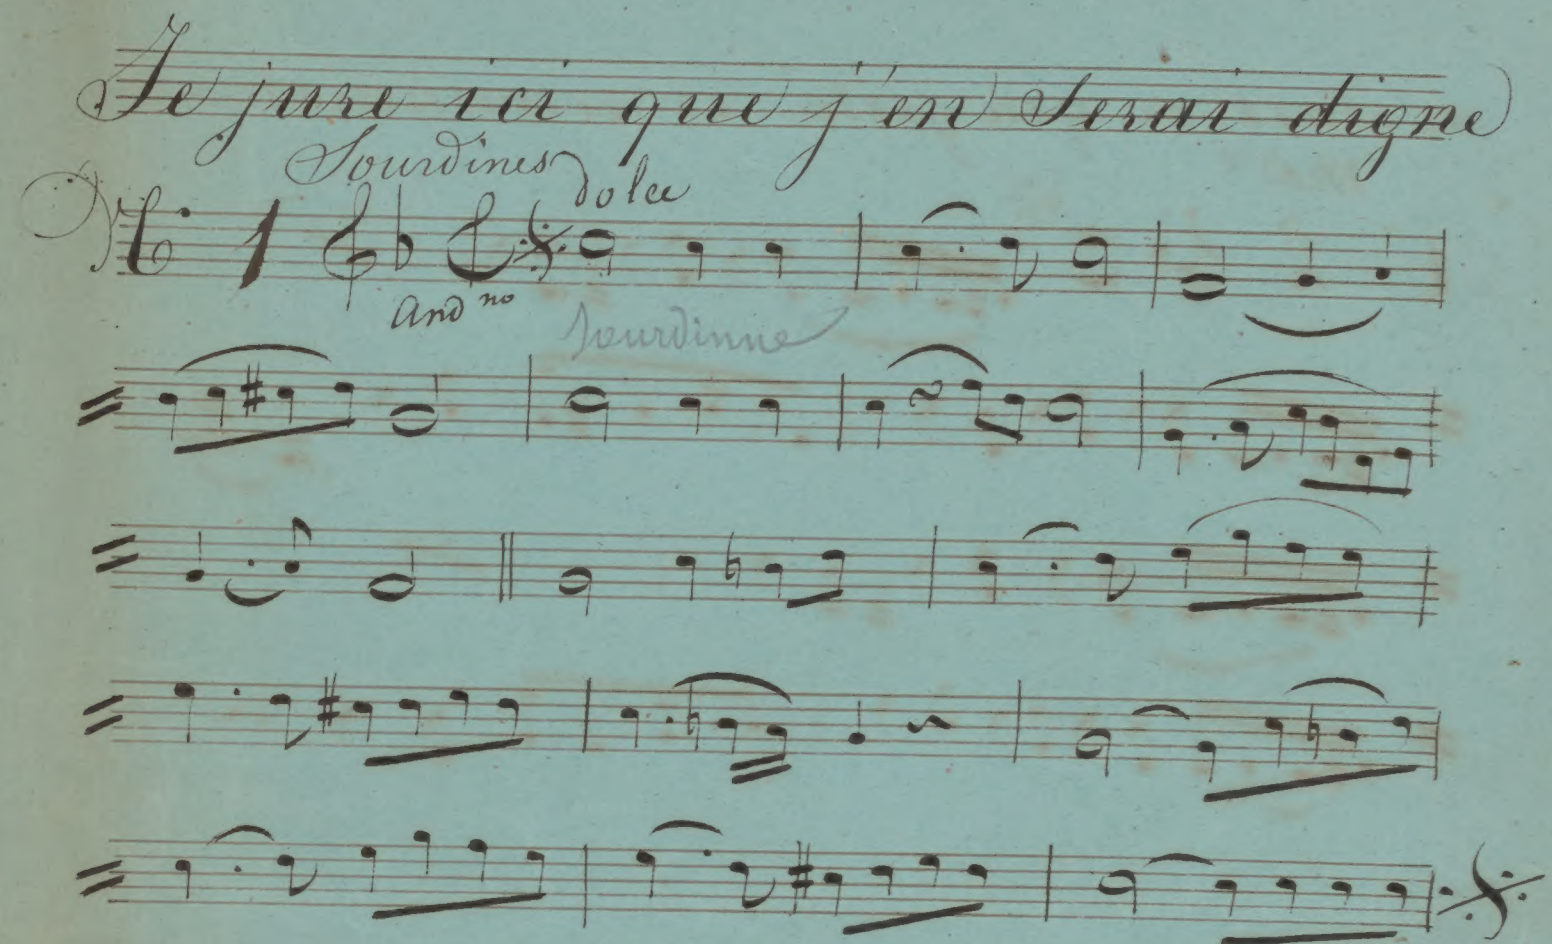 Je jure ici que j'en Serai digne
Sourdines dolce
N.º 1
And.no
Sourdinne